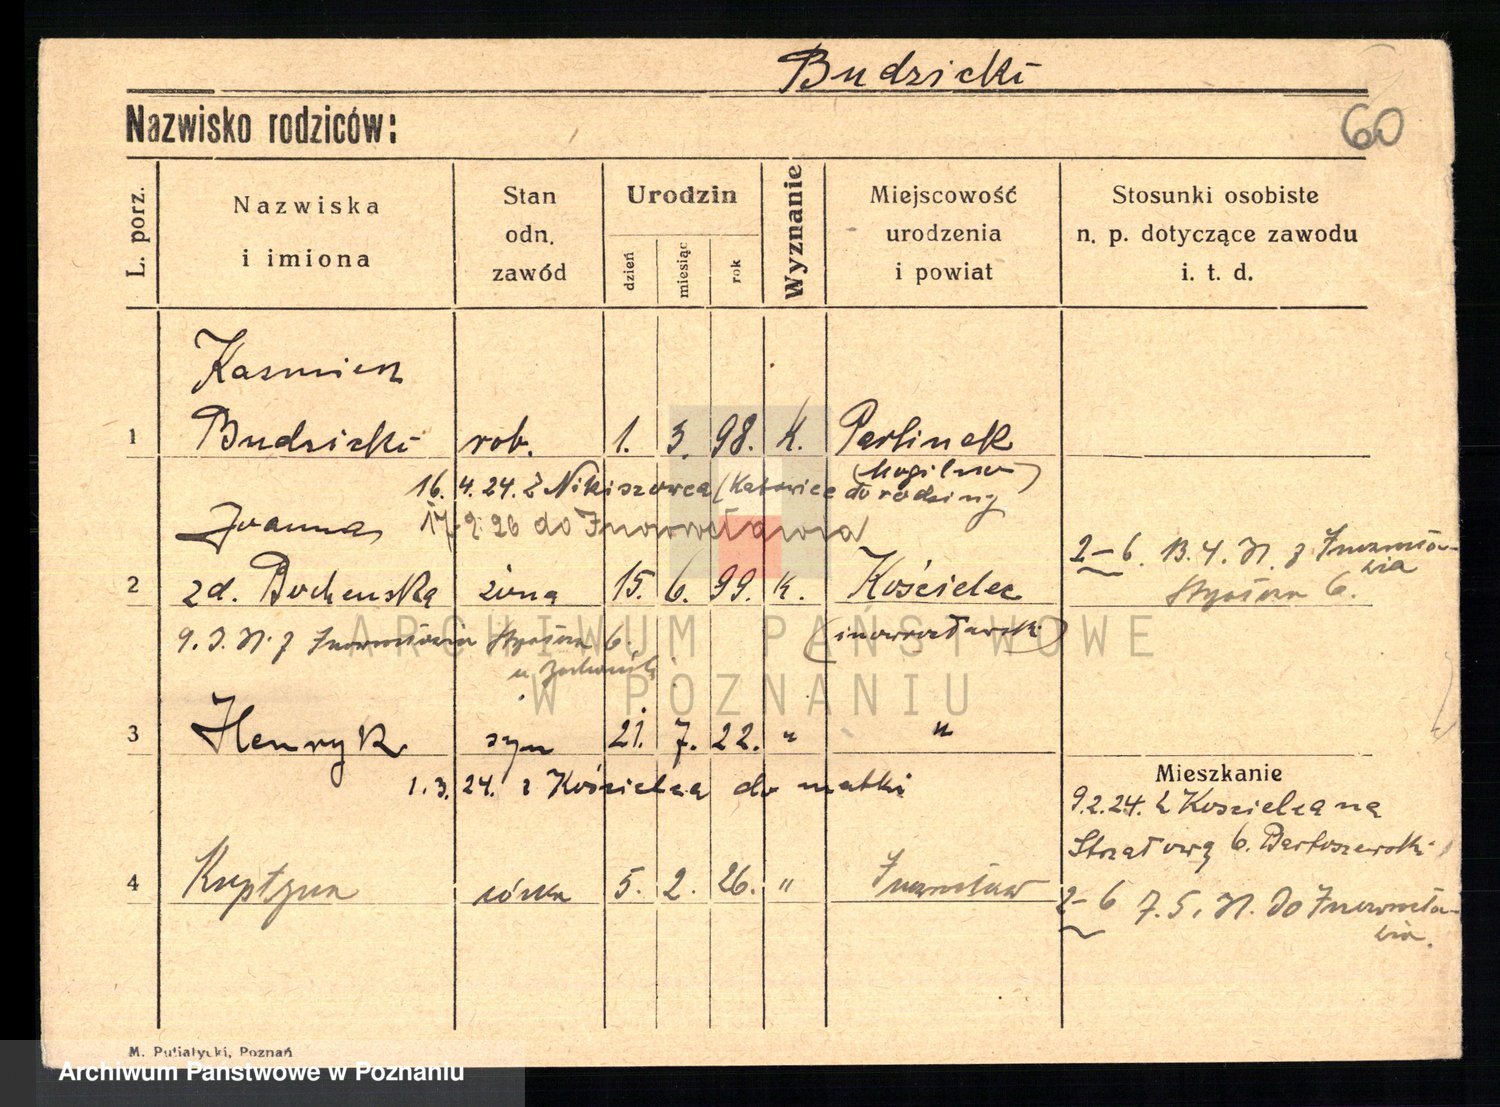 Budzicki
Nazwisko rodziców:
60
L. porz.
Nazwiska
i imiona
Stan
odn.
zawód
Urodzin
dzień
miesiąc
rok
Wyznanie
Miejscowość
urodzenia
i powiat
Stosunki osobiste
n. p. dotyczące zawodu
i. t. d.
Kazmierz
1 Budzicki rob. 1. 3. 98. K. Parlinek
(Mogilno)
16. 4. 24. Z Nikiszowca (Katowice do rodziny
17. 9. 26 do Inowrocławia
Joanna
2 zd. Bochenska żona 15. 6. 99. K. Kościelec
(inowrocławski)
2-6. 13. 4. z Inowrocła-
wia
6.
9. 3. z Inowrocławia 6.
3 Henryk syn 21. 7. 22. " "
1. 3. 24. z Kościelca do matki
Mieszkanie
9.2.24. Z Koscielca na
6. Bartoszewski
4 córka 5. 2. 26. " Inowrocław
2-6 7. 5. do Inowrocła-
wia.
M. Putiatycki, Poznań
ARCHIWUM PAŃSTWOWE
W POZNANIU
Archiwum Państwowe w Poznaniu